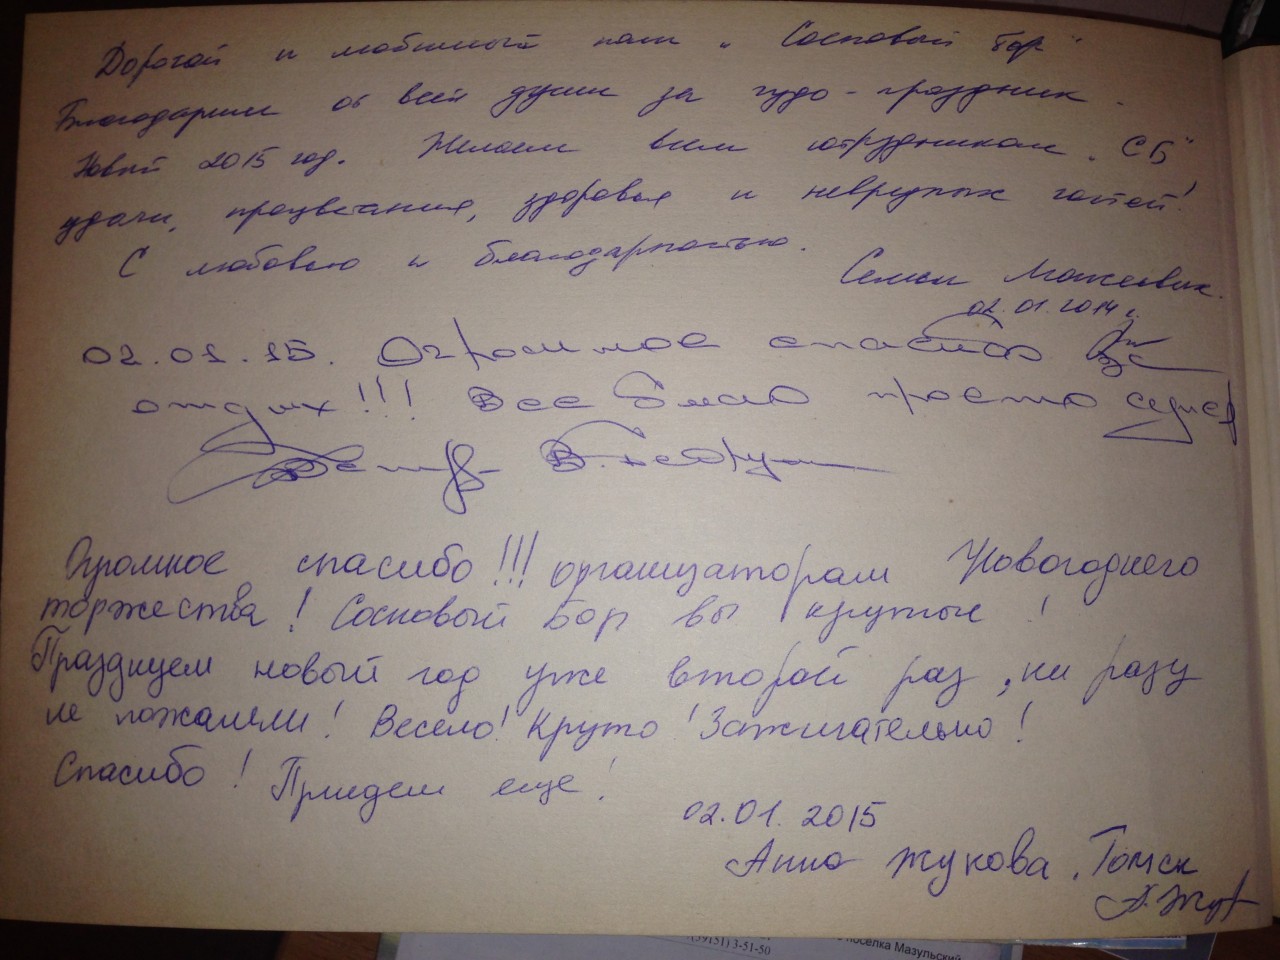 Дорогой и любимый наш „Сосновый бор"
Благодарим от всей души за чудо-праздник.
Новый 2015 год. Желаем всем сотрудникам „СБ"
удачи, процветания, здоровья и невредных гостей!
С любовью и благодарностью.
Семьи
02.01.2014 г.
02.01.15. Огромное спасибо Вам за
отдых!!! Все было просто супер
Огромное спасибо!!! организаторам Новогоднего
торжества! Сосновый Бор вы крутые!
Празднуем новый год уже второй раз, ни разу
не пожалели! Весело! Круто! Зажигательно!
Спасибо! Придем еще!
02.01.2015
Анна Жукова. Томск
А. Жук
(39151) 3-51-50
поселка Мазульский